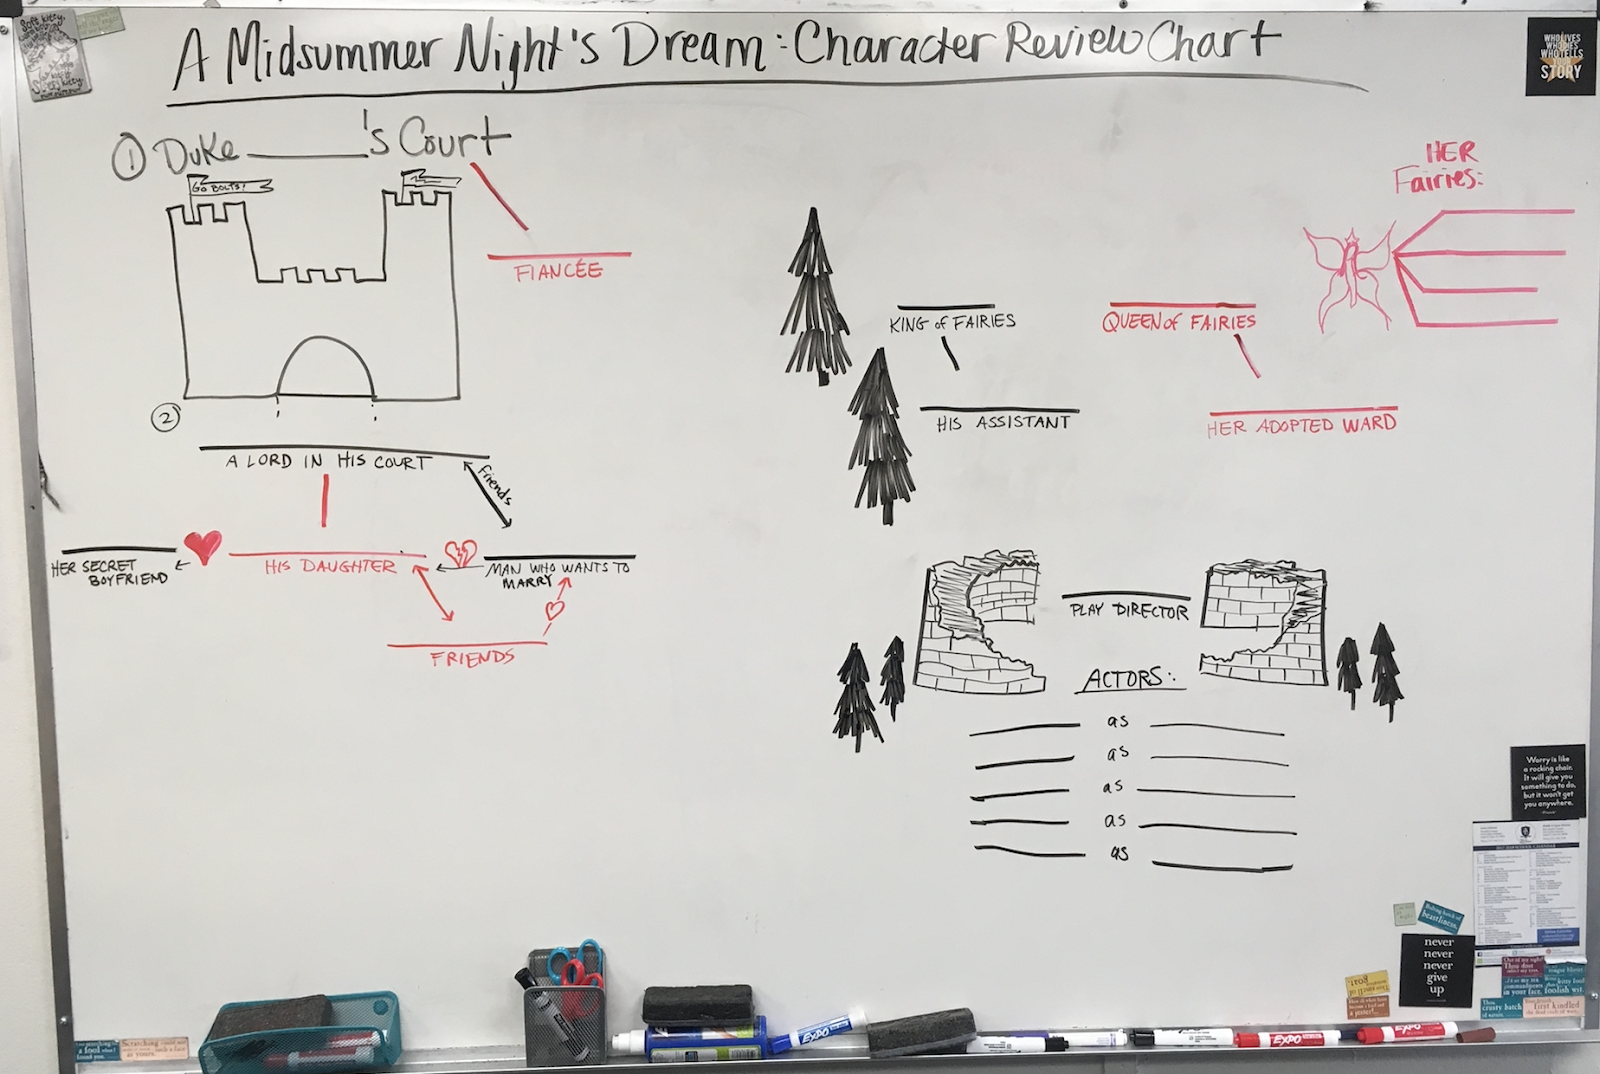 A Midsummer Night's Dream: Character Review Chart
① Duke ______'s Court
GO BOLTS!
FIANCÉE
②
A LORD IN HIS COURT
friends
HER SECRET
BOYFRIEND
HIS DAUGHTER
MAN WHO WANTS TO
MARRY
FRIENDS
KING of FAIRIES
HIS ASSISTANT
QUEEN of FAIRIES
HER ADOPTED WARD
HER
Fairies:
PLAY DIRECTOR
ACTORS:
as
as
as
as
as
WHO LIVES
WHO DIES
WHO TELLS
YOUR
STORY
Worry is like
a rocking chair.
It will give you
something to do,
but it won't get
you anywhere.
never
never
never
give
up
EXPO
EXPO
EXPO